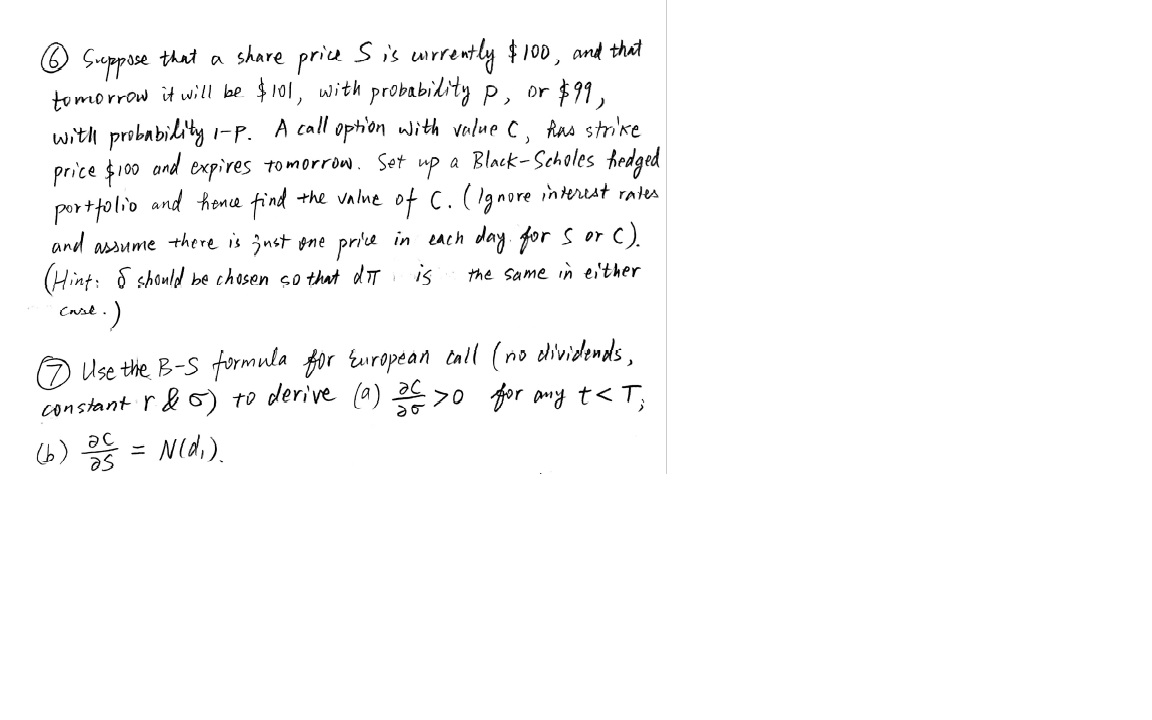 ⑥ Suppose that a share price S is currently $100, and that
tomorrow it will be $101, with probability p, or $99,
with probability 1-p. A call option with value C, has strike
price $100 and expires tomorrow. Set up a Black-Scholes hedged
portfolio and hence find the value of C. (Ignore interest rates
and assume there is just one price in each day for S or C).
(Hint: δ should be chosen so that dπ is the same in either
case.)
⑦ Use the B-S formula for European call (no dividends,
constant r & σ) to derive (a) ∂C/∂σ >0 for any t< T;
(b) ∂C/∂S = N(d₁).